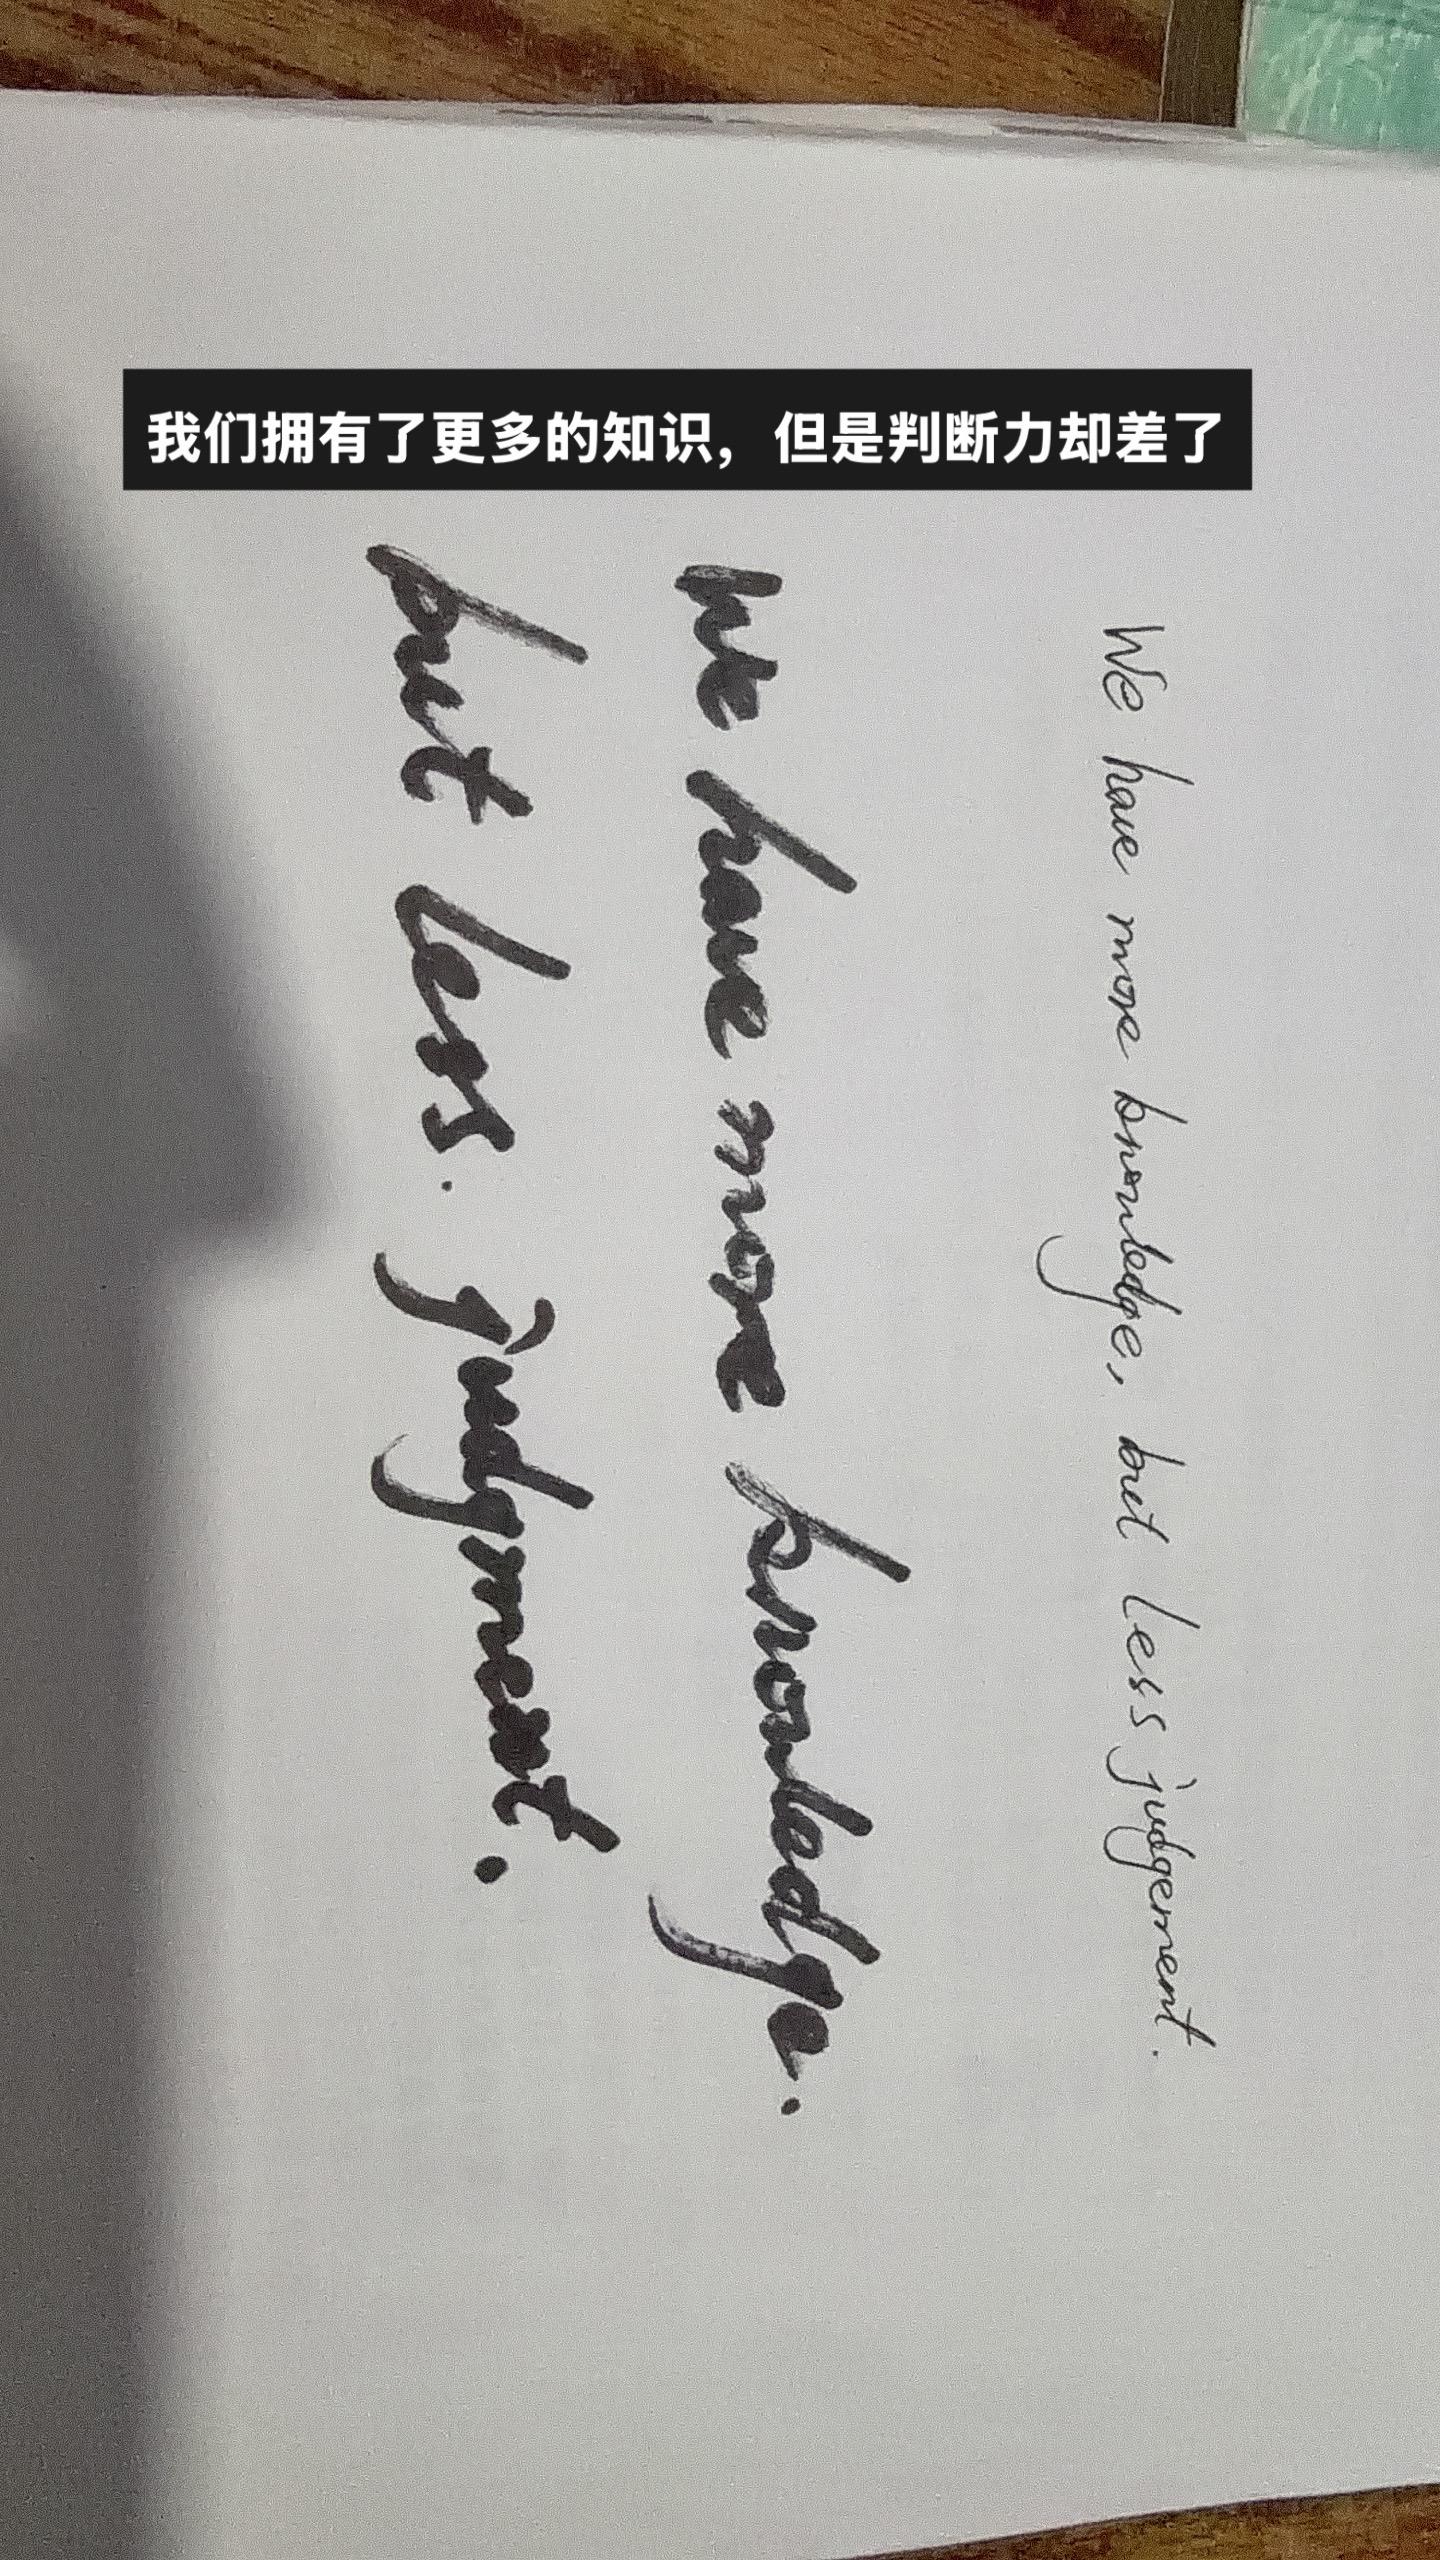 我们拥有了更多的知识，但是判断力却差了
We have more knowledge, but less judgement.
We have more knowledge.
but less. judgment.